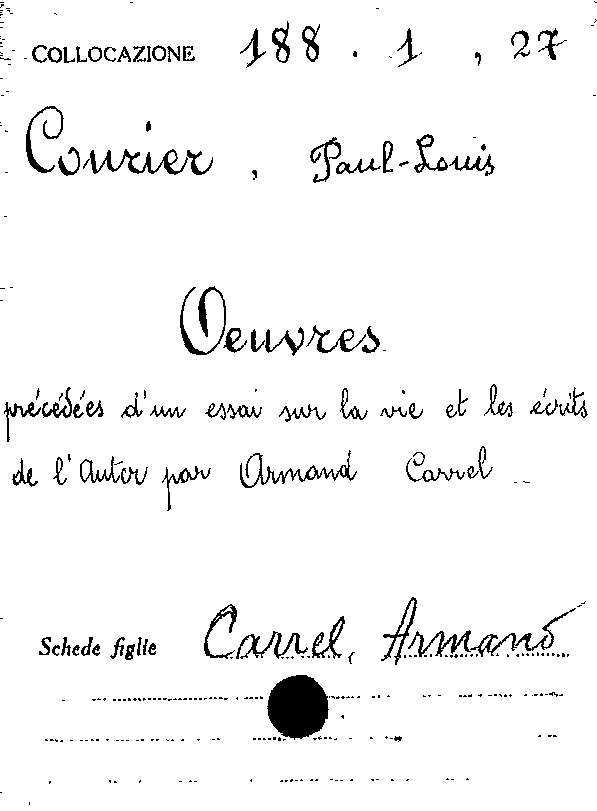 COLLOCAZIONE 188 . 1 , 27
Courier , Paul-Louis
Oeuvres
précédées d'un essai sur la vie et les écrits
de l'Auter par Armand Carrel
Schede figlie Carrel, Armand